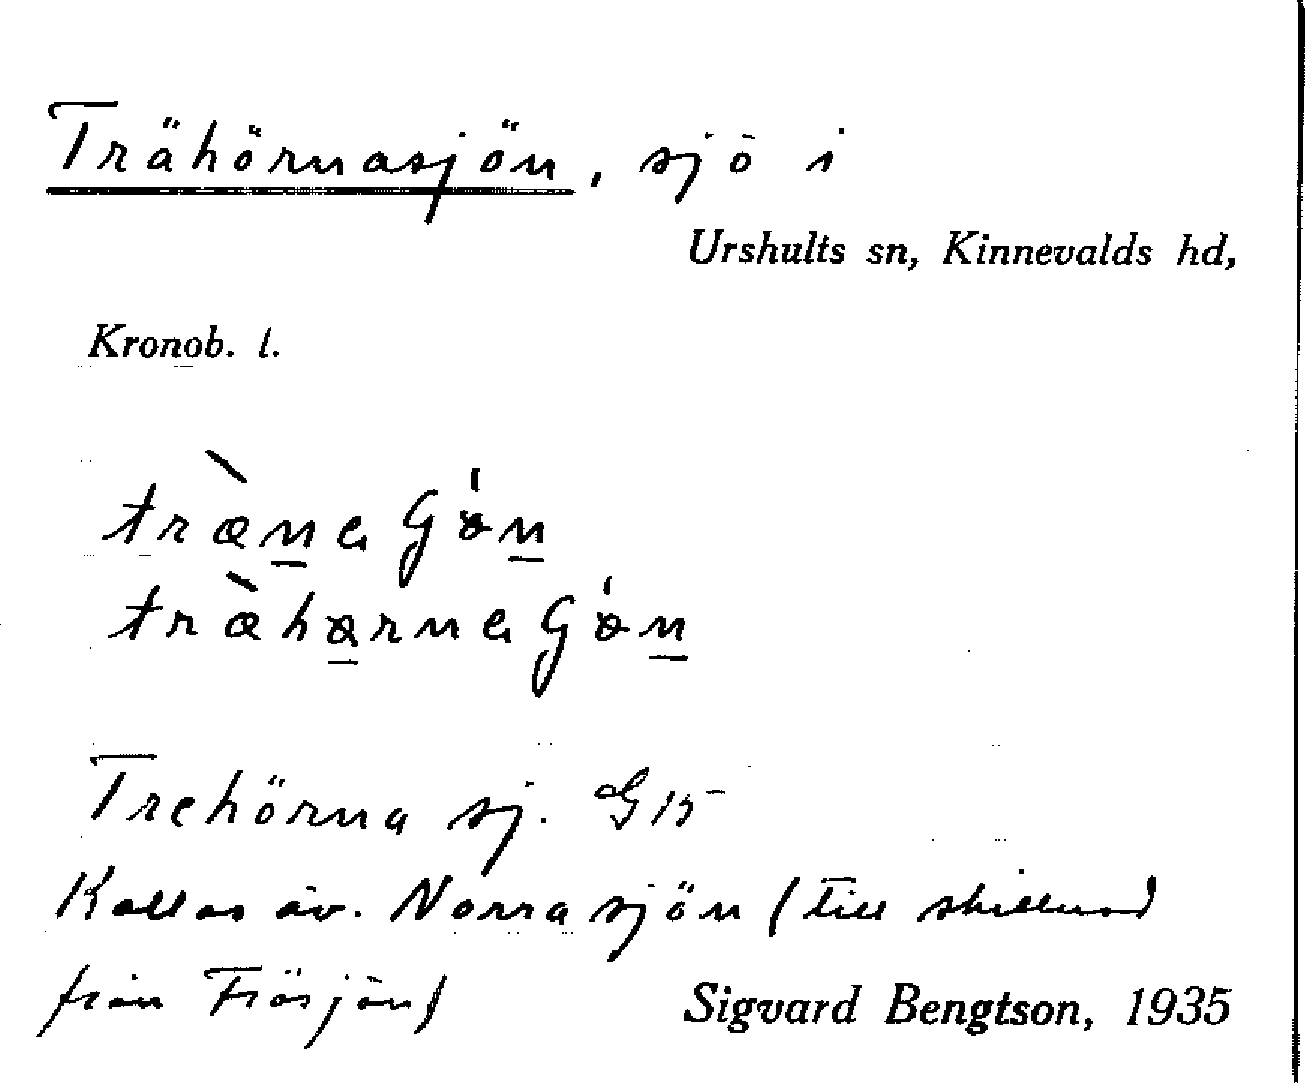 Trähörnasjön, sjö i
Urshults sn, Kinnevalds hd,
Kronob. l.
Trehörna sj. G 15
Kallas äv. Norra sjön (till skillnad
från Frösjön)
Sigvard Bengtson, 1935